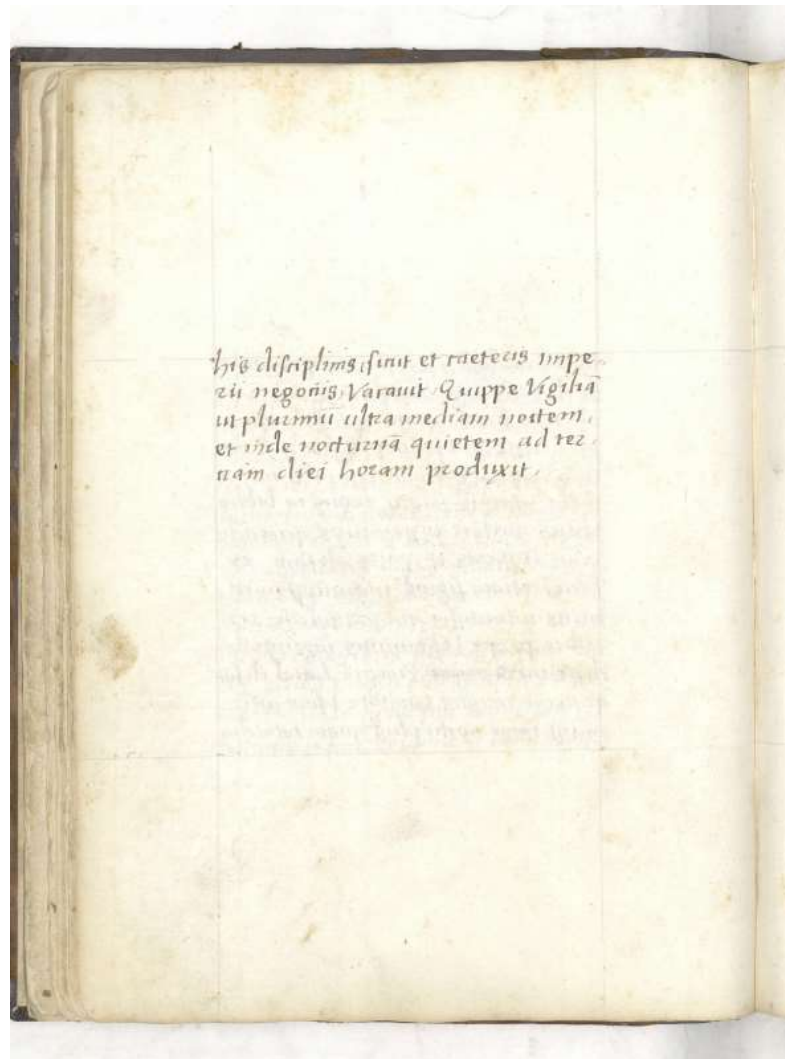 his disciplinis, sicut et caeteris impe
rii negociis, Vacauit. Quippe Vigiliã
ut plurimũ ultra mediam noctem,
et inde nocturnã quietem ad ter
ciam diei horam produxit.